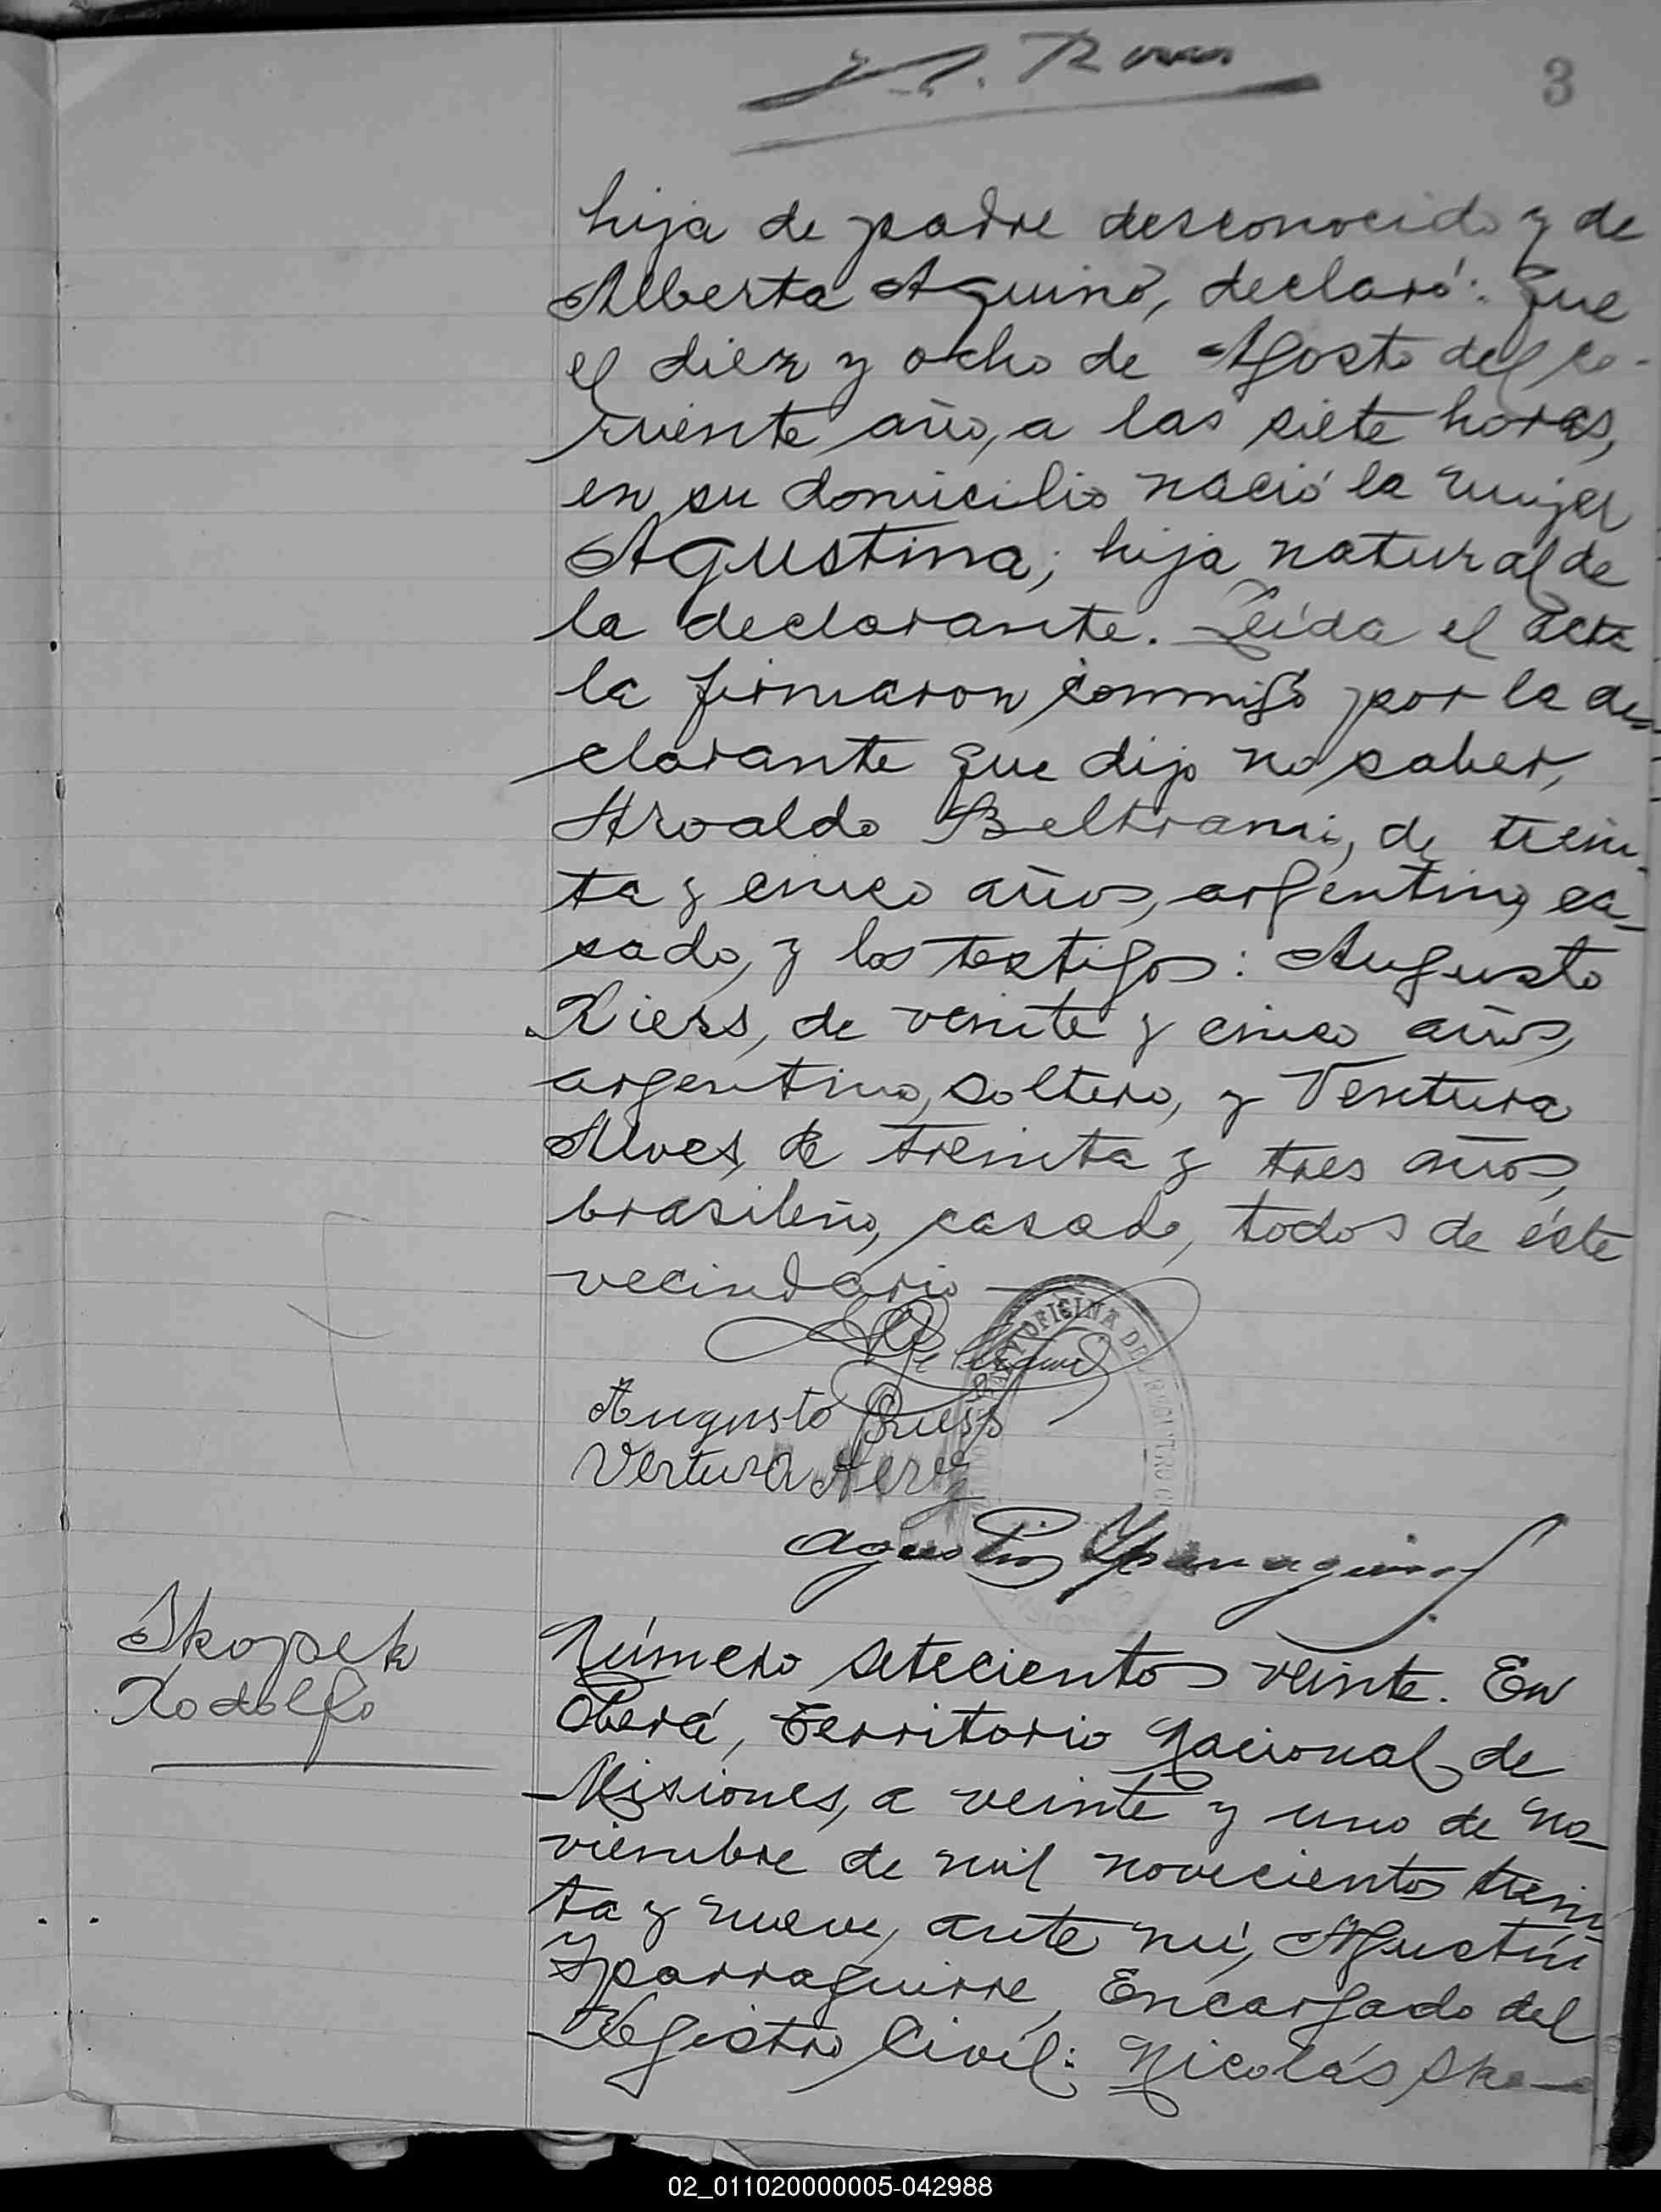 3
hija de padre desconocido y de
Alberta Aquino, declaró: Que
el diez y ocho de Agosto del co-
rriente año, a las siete horas,
en su domicilio nació la mujer
Agustina; hija natural de
la declarante. Leída el acta
la firmaron conmigo por la de-
clarante que dijo no saber,
Aroaldo Beltrami, de trein-
ta y cinco años, argentino, ca-
sado, y los testigos: Augusto
Riess, de veinte y cinco años,
argentino, soltero, y Ventura
Alves, de treinta y tres años,
brasileño, casado, todos de éste
vecindario
Beltrami
OFICINA DEL REGISTRO CI
Augusto Riess
Ventura
Agustin Yparraguirre
Skopek
Rodolfo
Número setecientos veinte. En
Oberá, Territorio Nacional de
Misiones, a veinte y uno de No-
viembre de mil novecientos trein-
ta y nueve, ante mí, Agustín
Yparraguirre, Encargado del
Registro Civil: Nicolás Sko-
02_011020000005-042988